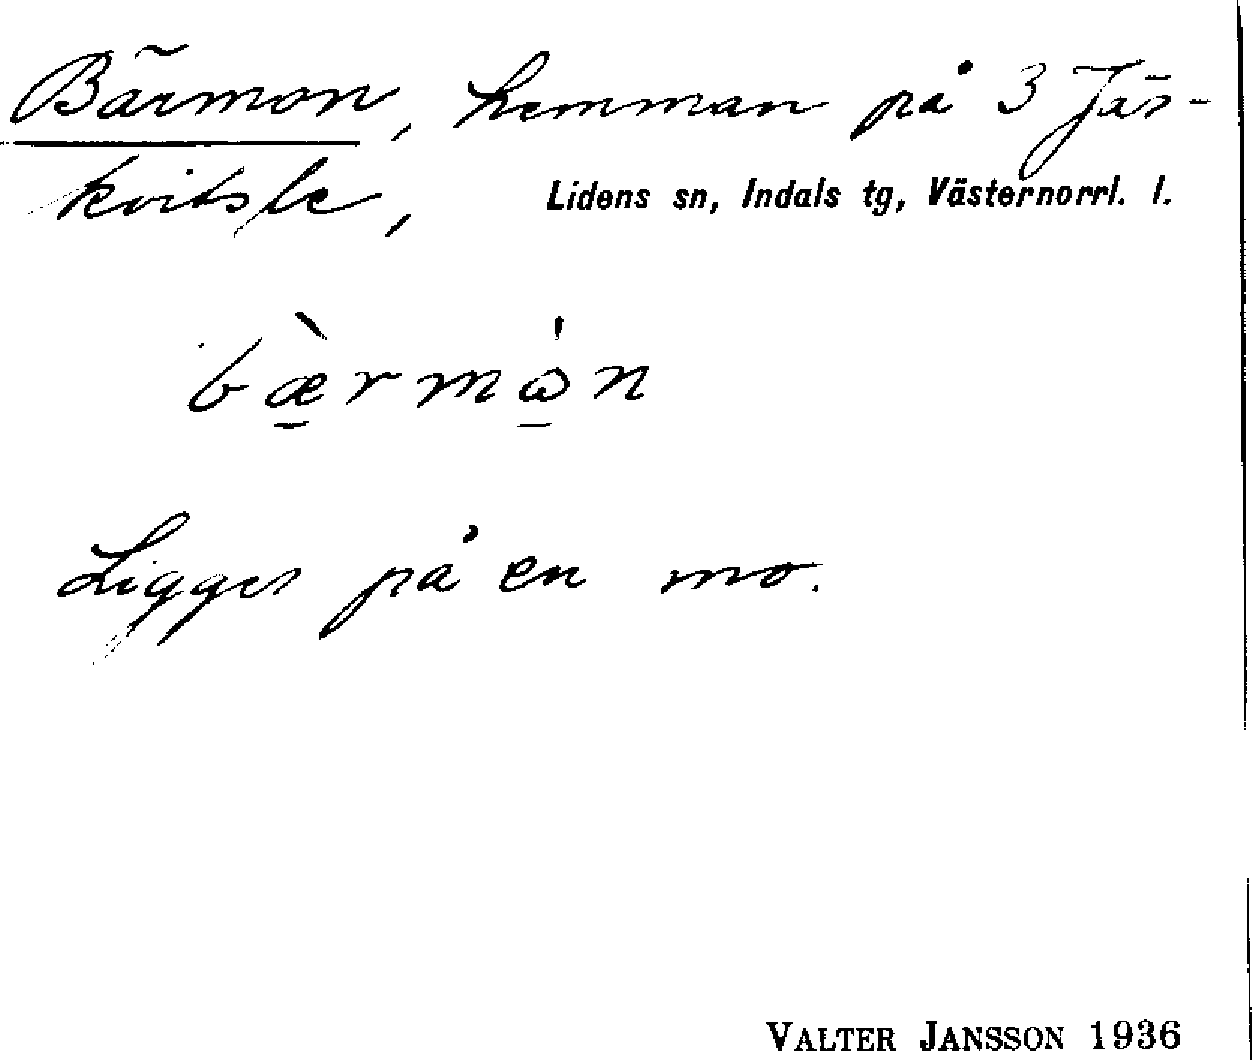 Bärmon, hemman på 3 Jär-
kvitsle, Lidens sn, Indals tg, Västernorrl. l.
bæ̱̀rmω̱̍n
Ligger på en mo.
VALTER JANSSON 1936